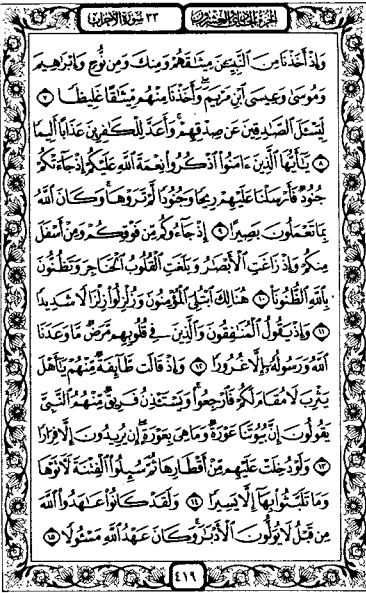 الجزء الحادي والعشرون
٣٣ سورة الأحزاب
وَإِذْ أَخَذْنَا مِنَ النَّبِيِّـۧنَ مِيثَـٰقَهُمْ وَمِنكَ وَمِن نُّوحٍ وَإِبْرَٰهِيمَ
وَمُوسَىٰ وَعِيسَى ابْنِ مَرْيَمَ ۖ وَأَخَذْنَا مِنْهُم مِّيثَـٰقًا غَلِيظًا ٧
لِّيَسْـَٔلَ الصَّـٰدِقِينَ عَن صِدْقِهِمْ ۚ وَأَعَدَّ لِلْكَـٰفِرِينَ عَذَابًا أَلِيمًا
٨ يَـٰٓأَيُّهَا الَّذِينَ ءَامَنُوا اذْكُرُوا نِعْمَةَ اللَّهِ عَلَيْكُمْ إِذْ جَآءَتْكُمْ
جُنُودٌ فَأَرْسَلْنَا عَلَيْهِمْ رِيحًا وَجُنُودًا لَّمْ تَرَوْهَا ۚ وَكَانَ اللَّهُ
بِمَا تَعْمَلُونَ بَصِيرًا ٩ إِذْ جَآءُوكُم مِّن فَوْقِكُمْ وَمِنْ أَسْفَلَ
مِنكُمْ وَإِذْ زَاغَتِ الْأَبْصَـٰرُ وَبَلَغَتِ الْقُلُوبُ الْحَنَاجِرَ وَتَظُنُّونَ
بِاللَّهِ الظُّنُونَا ١٠ هُنَالِكَ ابْتُلِيَ الْمُؤْمِنُونَ وَزُلْزِلُوا زِلْزَالًا شَدِيدًا
١١ وَإِذْ يَقُولُ الْمُنَـٰفِقُونَ وَالَّذِينَ فِي قُلُوبِهِم مَّرَضٌ مَّا وَعَدَنَا
اللَّهُ وَرَسُولُهُۥٓ إِلَّا غُرُورًا ١٢ وَإِذْ قَالَت طَّآئِفَةٌ مِّنْهُمْ يَـٰٓأَهْلَ
يَثْرِبَ لَا مُقَامَ لَكُمْ فَارْجِعُوا ۚ وَيَسْتَـْٔذِنُ فَرِيقٌ مِّنْهُمُ النَّبِيَّ
يَقُولُونَ إِنَّ بُيُوتَنَا عَوْرَةٌ وَمَا هِيَ بِعَوْرَةٍ ۖ إِن يُرِيدُونَ إِلَّا فِرَارًا
١٣ وَلَوْ دُخِلَتْ عَلَيْهِم مِّنْ أَقْطَارِهَا ثُمَّ سُئِلُوا الْفِتْنَةَ لَـَٔاتَوْهَا
وَمَا تَلَبَّثُوا بِهَآ إِلَّا يَسِيرًا ١٤ وَلَقَدْ كَانُوا عَـٰهَدُوا اللَّهَ
مِن قَبْلُ لَا يُوَلُّونَ الْأَدْبَـٰرَ ۚ وَكَانَ عَهْدُ اللَّهِ مَسْـُٔولًا ١٥
٤١٩